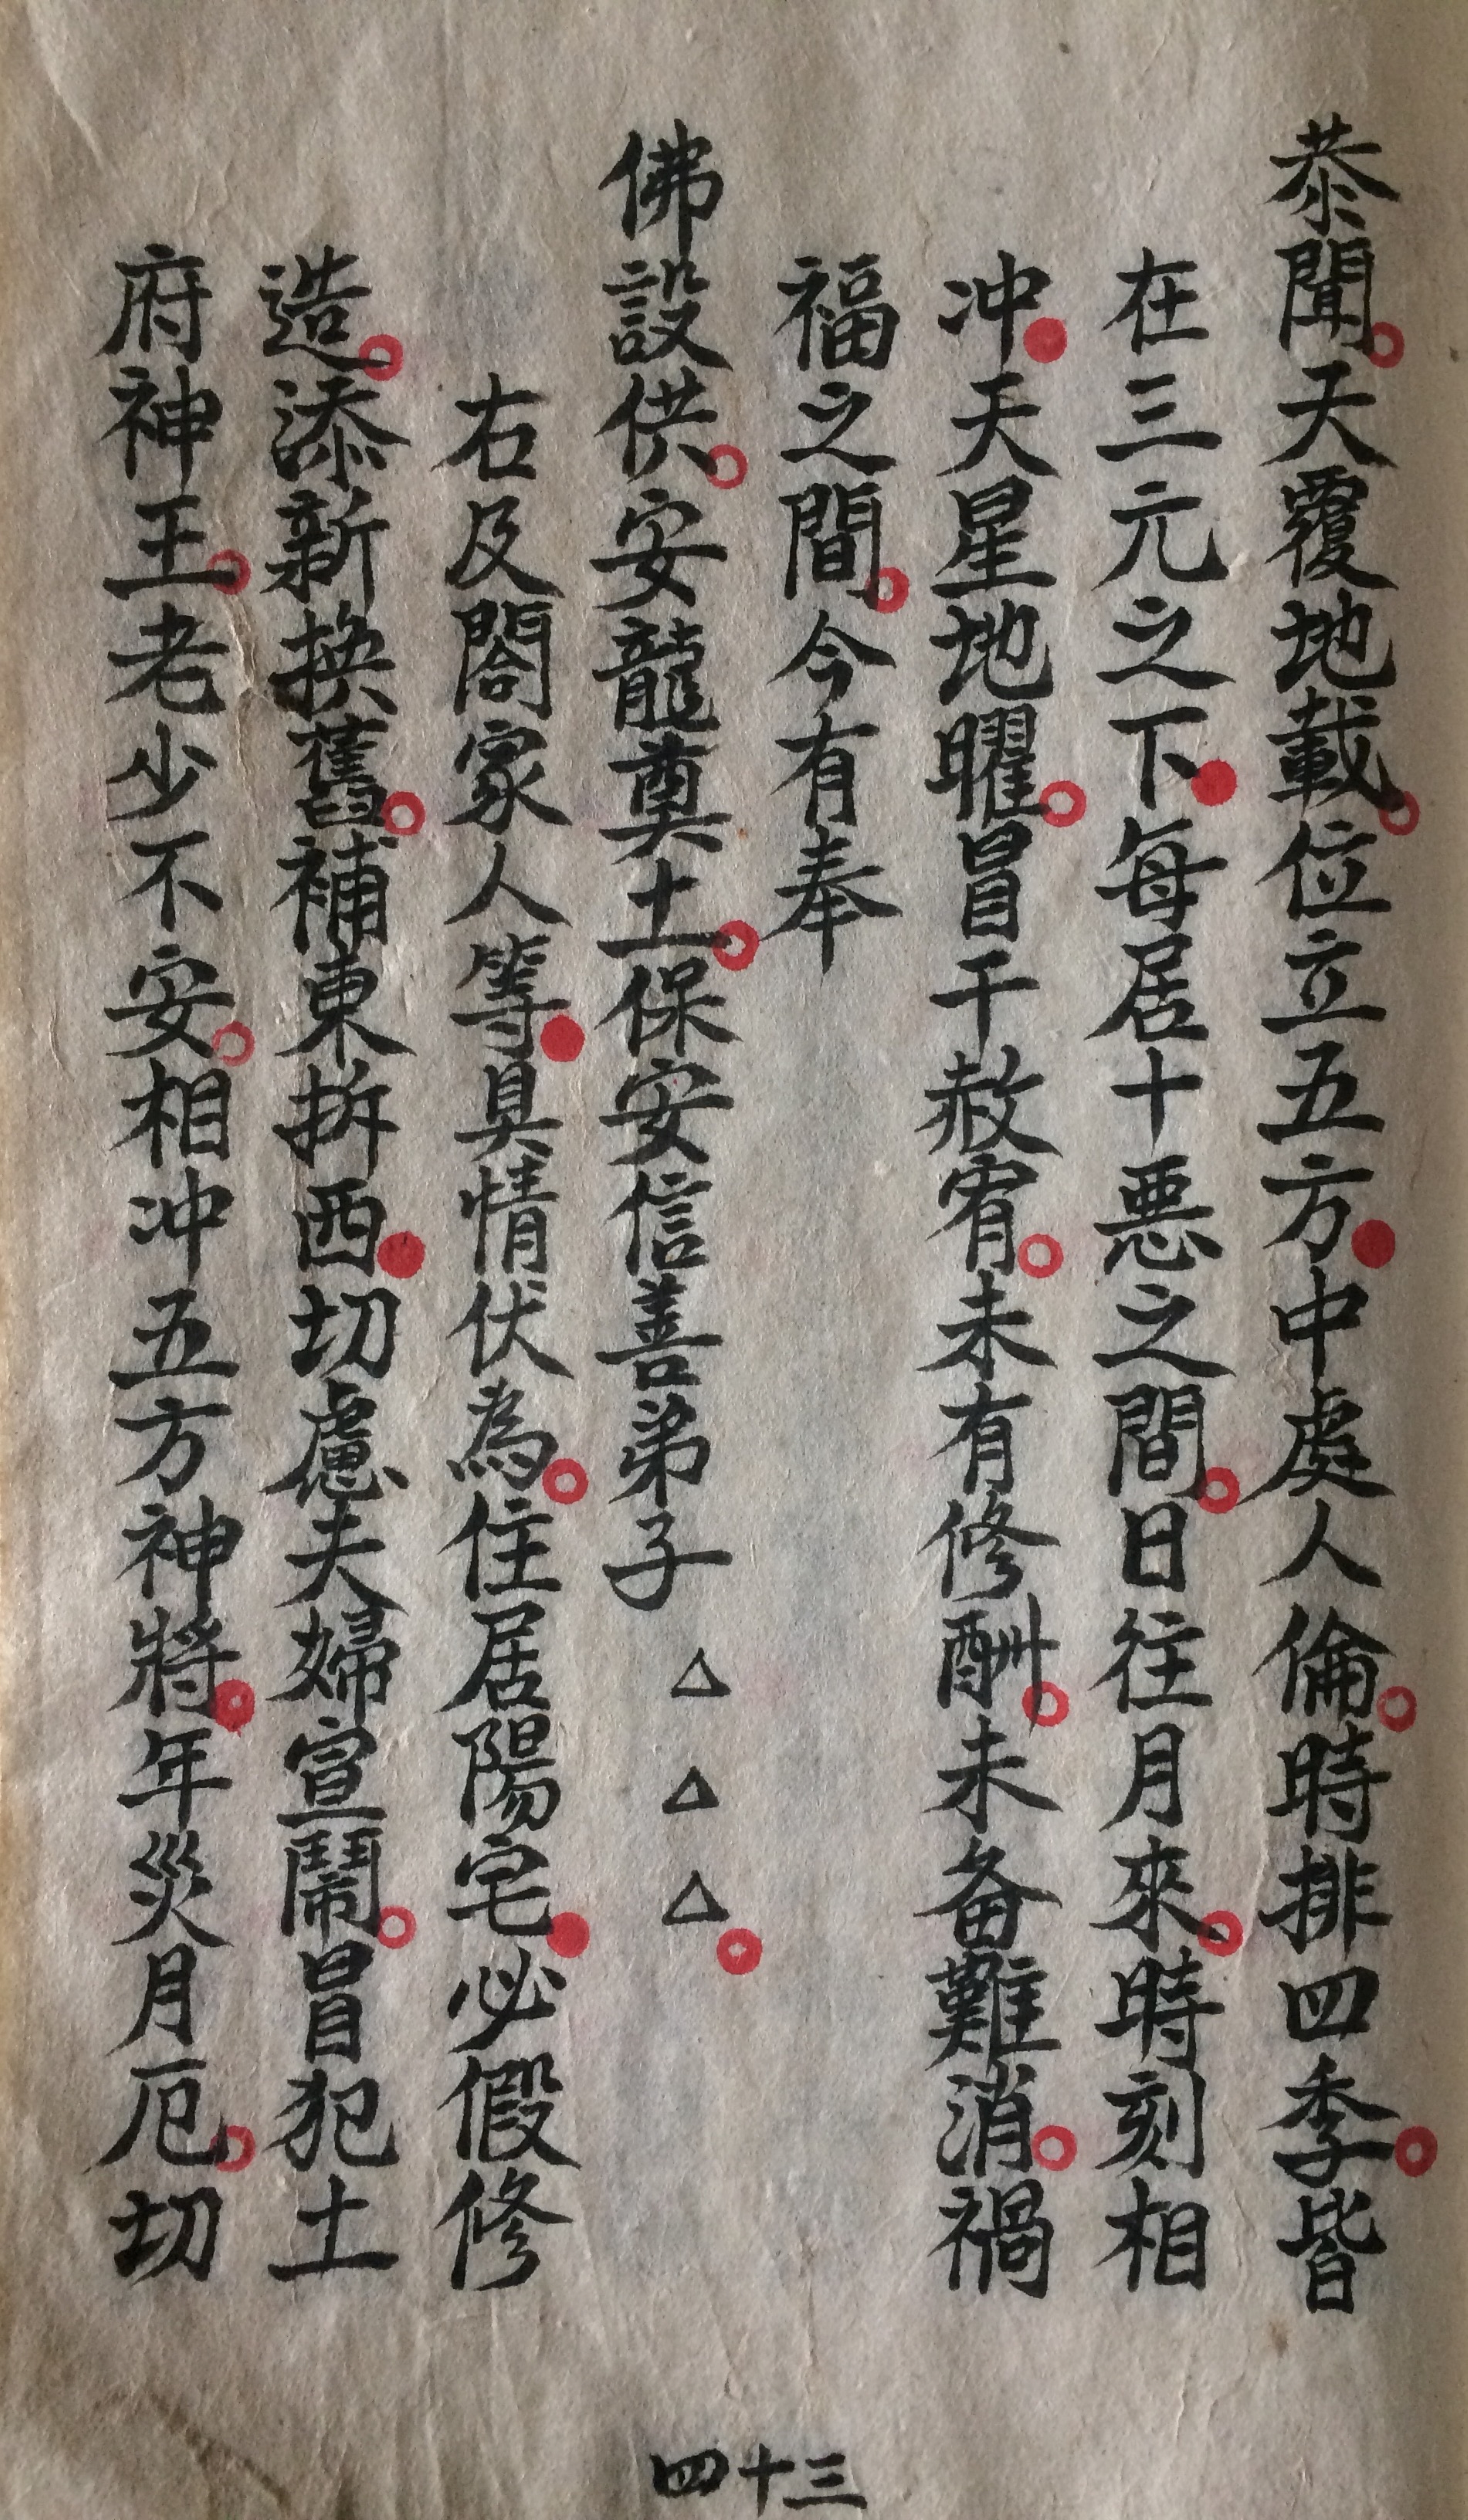 恭聞天覆地載位立五方中處人倫時排四季皆
在三元之下每居十惡之間日往月來時刻相
冲天星地曜冒干赦宥未有修酬未备難消禍
福之間今有奉
佛設供安龍奠土保安信善弟子△△△
右及閤家人等具情伏為住居陽宅必假修
造添新換舊補東拆西切慮夫婦宣鬧冒犯土
府神王老少不安相冲五方神將年災月厄切
四十三